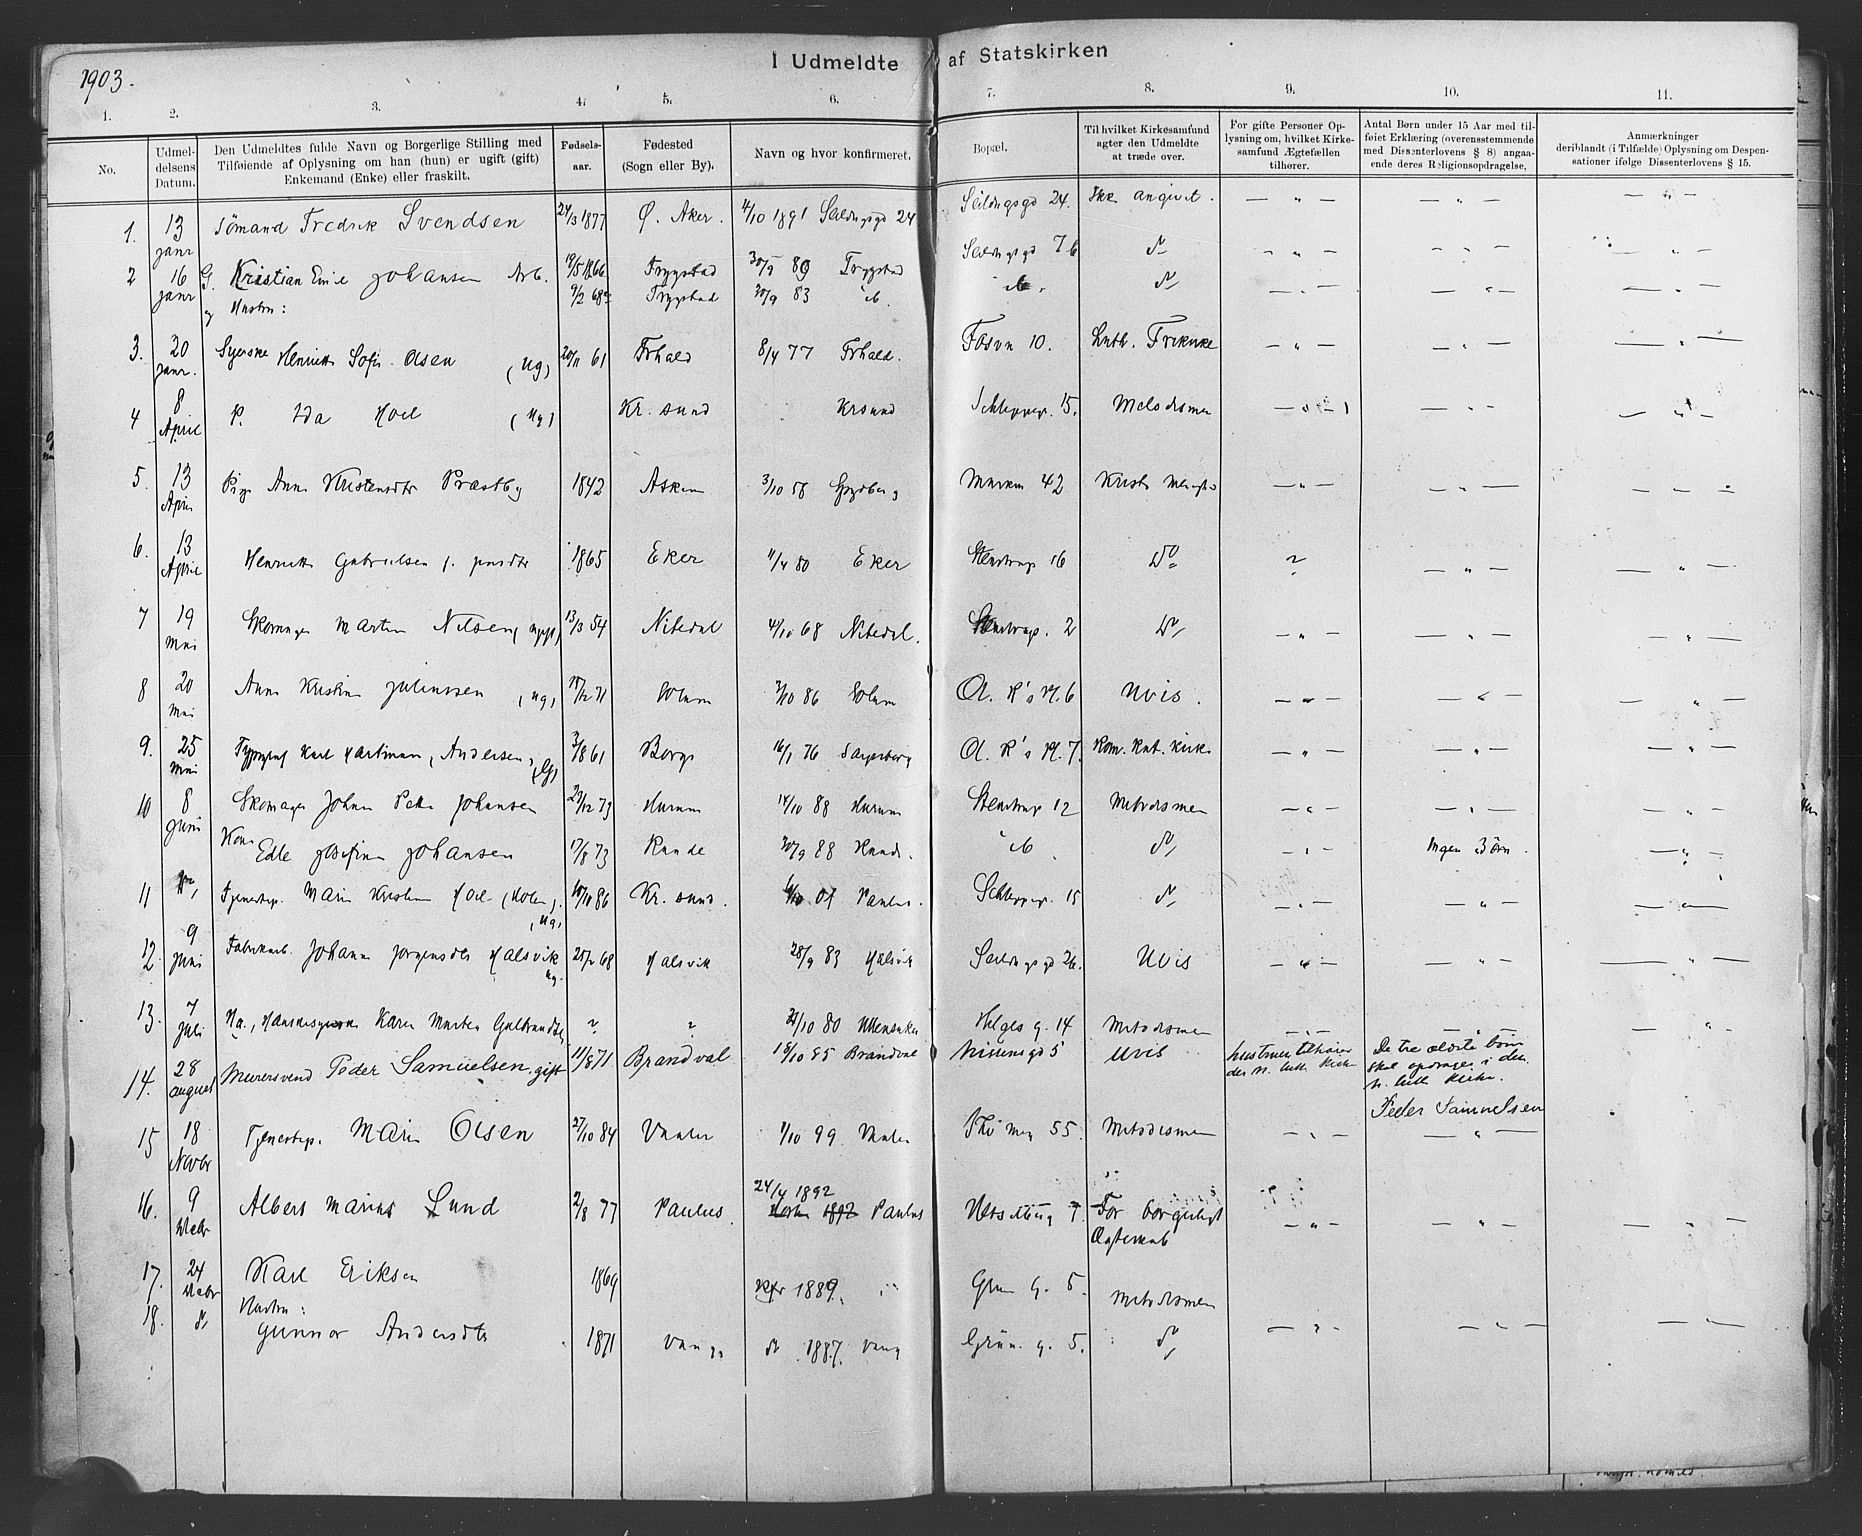 1903.
I Udmeldte af Statskirken
1. 2. 3. 4. 5. 6. 7. 8. 9. 10. 11.
No.
Udmel-
delsens
Datum.
Den Udmeldtes fulde Navn og Borgerlige Stilling med
Tilføiende af Oplysning om han (hun) er ugift (gift)
Enkemand (Enke) eller fraskilt.
Fødsels-
aar.
Fødested
(Sogn eller By).
Navn og hvor konfirmeret.
Bopæl.
Til hvilket Kirkesamfund
agter den Udmeldte
at træde over.
For gifte Personer Op-
lysning om, hvilket Kirke-
samfund Ægtefællen
tilhører.
Antal Børn under 15 Aar med til-
føiet Erklæring (overensstemmende
med Dissenterlovens § 8) angaa-
ende deres Religionsopdragelse.
Anmærkninger
deriblandt (i Tilfælde) Oplysning om Despen-
sationer ifølge Dissenterlovens § 15.
1. 13 janr Sömand Fredrik Svendsen 24/3 1877 Ø. Aker. 4/10 1891 Seildugsgd 24 Seildugsgd 24. Ikke angivet. — „ — — „ — — „ —
2 16 janr G. Kristian Emil Johansen Arb. 19/5 1866 Trygstad 30/9 80 Trygstad Seildugsgd 76 do — „ — — „ — — „ —
og Hustru: 9/2 68 Trygstad 30/9 83 ib. ib. do — „ — — „ — — „ —
3. 20 janr. Syerske Henriette Sofie Olsen (ug) 20/11 61 Frhald 8/4 77 Frhald. Fosvn 10. Luth. Frikirke — „ — — „ — — „ —
4 8 April P. Ida Hoel (ug) Kr. sund Krsund Schleppegr. 15. Metodismen — „ — — „ — — „ —
5. 13 April Pige Anne Kristensdtr Præstby 1842 Askim 3/10 58 Spydberg Markvn 42 — „ — — „ — — „ —
6. 13 April Henriette Gabrielsen f. 1865 Eker 11/4 80 Eker Stenstrupg 16 Do ? — „ — — „ —
7 19 Mai Skomager Martin Nilsen (ugift) 13/3 54 Nitedal 4/10 68 Nitedal. Stenstrupg. 2 Do — „ — — „ — — „ —
8 20 Mai Anna Kristine Juliussen (ug) 18/12 71 Solum 3/10 86 Solum O. R's Pl. 6 Uvis. — „ — — „ — — „ —
9. 25 Mai Typograf Karl Hartman, Andersen, (G) 3/8 61 Borge 16/1 76 Sarpsborg O. R's Pl. 7. Rom. kat. kirke — „ — — „ — — „ —
10 8 juni Skomager Johan Petter Johansen 23/12 73 Hurum 14/10 88 Hurum Stenstrupg 12 Metodismen — „ — — „ — — „ —
Kone Edle Josefine Johansen 17/8 73 Rande 30/9 88 ib. do — „ — Ingen Börn. — „ —
11 Do, Tjenestep. Marie Kristine Hoel (Holen), (ug) 10/10 86 Kr. sund. 01 Paulus. Schleppegr. 15 do — „ — — „ — — „ —
12. 9 juni Fabrikarb. Johanne Jørgensdtr Halsvik ug. 25/2 68 Halsvik 28/9 83 Halsvik Seildugsgd 26. Uvis — „ — — „ — — „ —
13. 7 juli Karen Marten Gulbrandsen ? ? /10 80 Ullensaker Helges g. 14 Metodismen — „ — — „ — — „ —
14. 28 august Murersvend Peder Samuelsen, gift 11/8 71 Brandval 18/10 85 Brandval Nissensgd 5 Uvis hustruen tilhører
den N. luth Kirke De tre ældste börn
skal opdrages i den
N. luth Kirke.
Peder Samuelsen
15 18 Novbr Tjenestep. Marie Olsen 27/10 84 Vaaler 1/10 99 Vaaler Ths Mey 55. Metodismen — „ — — „ —
16. 9 Debr Albert Marius Lund 2/8 77 Paulus. 24/4 1892
1892 Paulus 7. For borgerligt
Ægteskab — „ — — „ — — „ —
17. 24 Debr Karl Eriksen 1869 Kfr 1889. „ Grün. g. 5. Metodismen
18. do Hustru:
Gunnor Andersdtr 1871 Vang do 1887. Vang Grün. g. 5. do — „ — — „ — — „ —